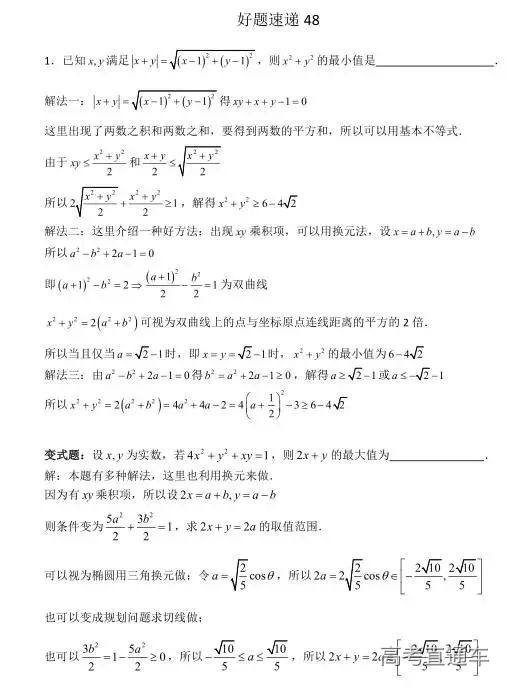 好题速递 48
1．已知 x, y 满足 |x+y|=√((x−1)²+(y−1)²)，则 x²+y² 的最小值是____________________．
解法一：|x+y|=√((x−1)²+(y−1)²) 得 xy+x+y−1=0
这里出现了两数之积和两数之和，要得到两数的平方和，所以可以用基本不等式．
由于 xy≤(x²+y²)/2 和 (x+y)/2≤√((x²+y²)/2)
所以 2√((x²+y²)/2)+(x²+y²)/2≥1，解得 x²+y²≥6−4√2
解法二：这里介绍一种好方法：出现 xy 乘积项，可以用换元法，设 x=a+b, y=a−b
所以 a²−b²+2a−1=0
即 (a+1)²−b²=2⇒(a+1)²/2−b²/2=1 为双曲线
x²+y²=2(a²+b²) 可视为双曲线上的点与坐标原点连线距离的平方的 2 倍．
所以当且仅当 a=√2−1 时，即 x=y=√2−1 时， x²+y² 的最小值为 6−4√2
解法三：由 a²−b²+2a−1=0 得 b²=a²+2a−1≥0，解得 a≥√2−1 或 a≤−√2−1
所以 x²+y²=2(a²+b²)=4a²+4a−2=4(a+1/2)²−3≥6−4√2
变式题：设 x, y 为实数，若 4x²+y²+xy=1，则 2x+y 的最大值为________________．
解：本题有多种解法，这里也利用换元来做．
因为有 xy 乘积项，所以设 2x=a+b, y=a−b
则条件变为 5a²/2+3b²/2=1，求 2x+y=2a 的取值范围．
可以视为椭圆用三角换元做：令 a=√(2/5)cosθ，所以 2a=2√(2/5)cosθ∈[−2√10/5, 2√10/5]
也可以变成规划问题求切线做；
也可以 3b²/2=1−5a²/2≥0，所以 −√10/5≤a≤√10/5，所以 2x+y=2a∈[−2√10/5, 2√10/5]
高考直通车